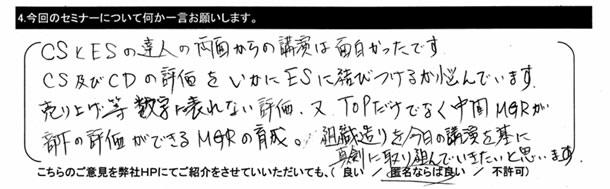 4.今回のセミナーについて何か一言お願いします。
CSとESの達人の両面からの講演は面白かったです
CS及びCDの評価をいかにESに結びつけるか悩んでいます.
売り上げ等数字に表れない評価、又、TOPだけでなく中間MGRが
部下の評価ができるMGRの育成。組織造りを今日の講演を基に
真剣に取り組んでいきたいと思います.
こちらのご意見を弊社HPにてご紹介をさせていただいても、( 良い / 匿名ならば良い / 不許可)